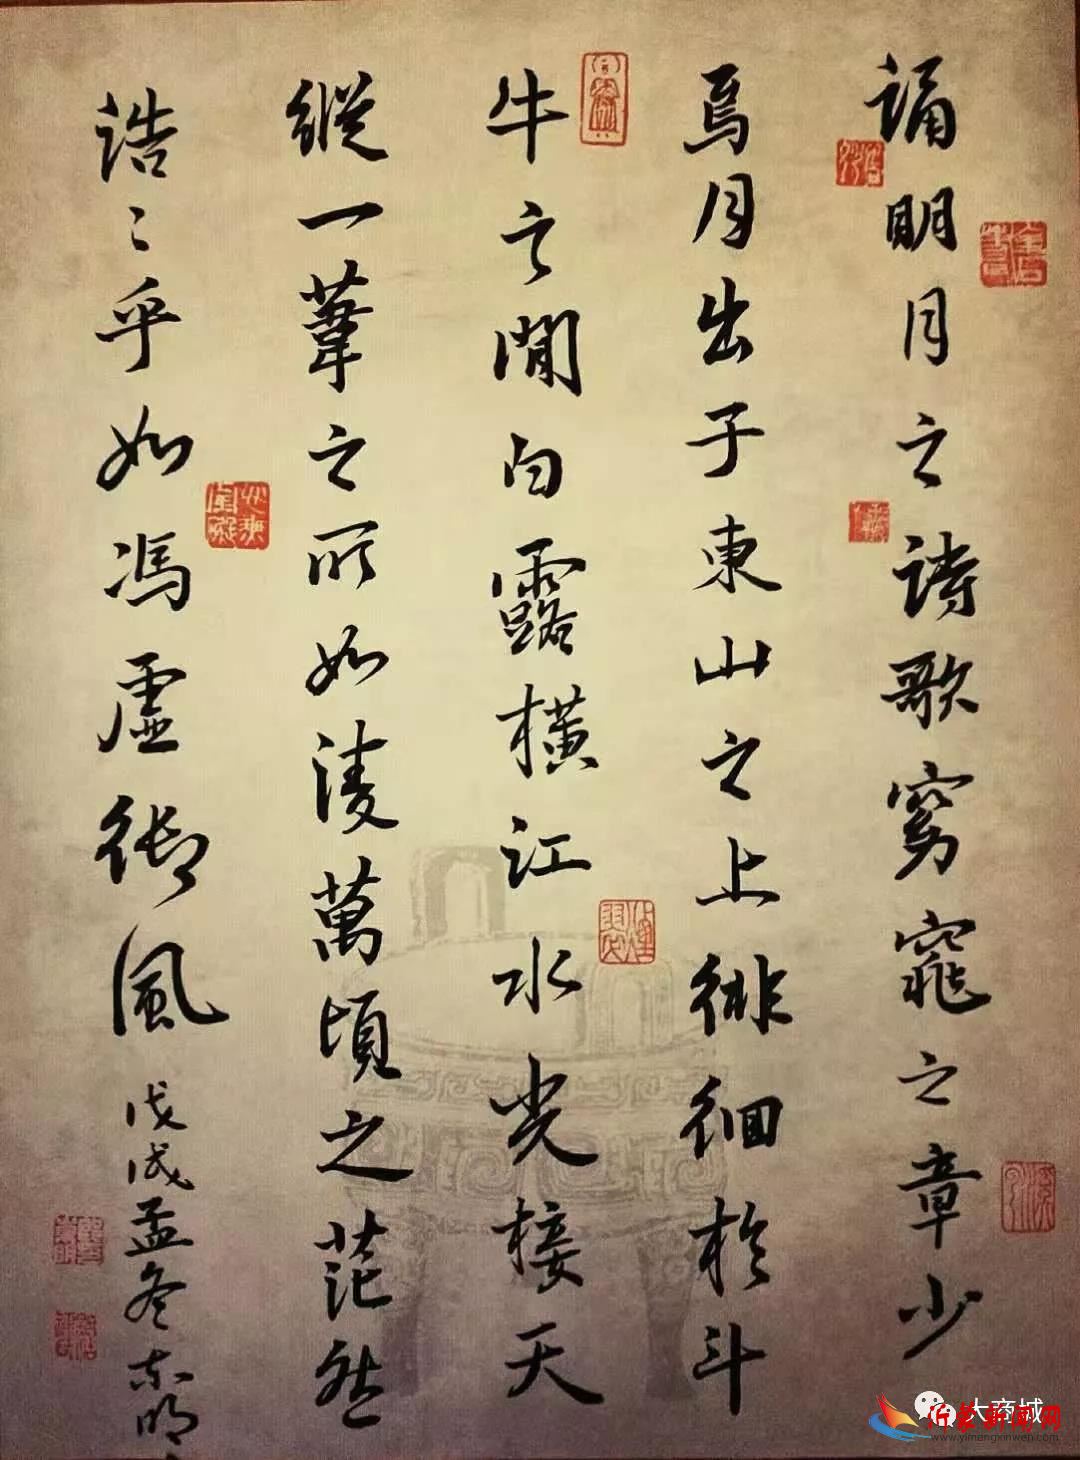 誦明月之詩歌窈窕之章少
焉月出于東山之上徘徊於斗
牛之間白露橫江水光接天
縱一葦之所如淩萬頃之茫然
浩〻乎如馮虛御風
戊戌孟冬
大商城
沂蒙新闻网
www.yimengxinwen.com